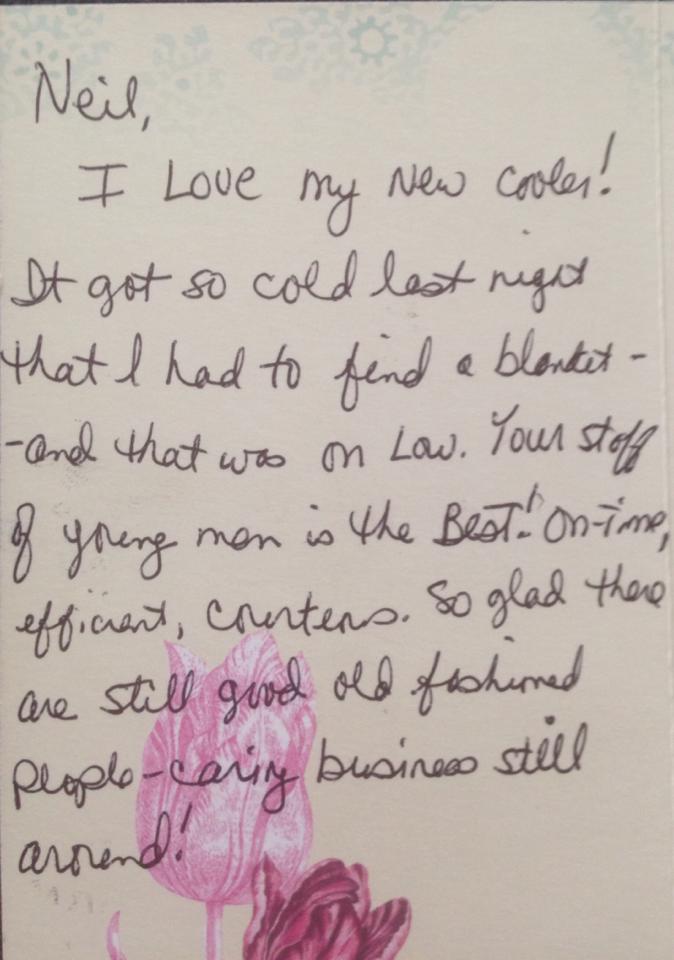 Neil,
I Love my New cooler!
It got so cold last night
that I had to find a blanket -
- and that was on Low. Your staff
of young men is the Best! On-time,
efficient, courteous. So glad there
are still good old fashioned
people-caring business still
around!